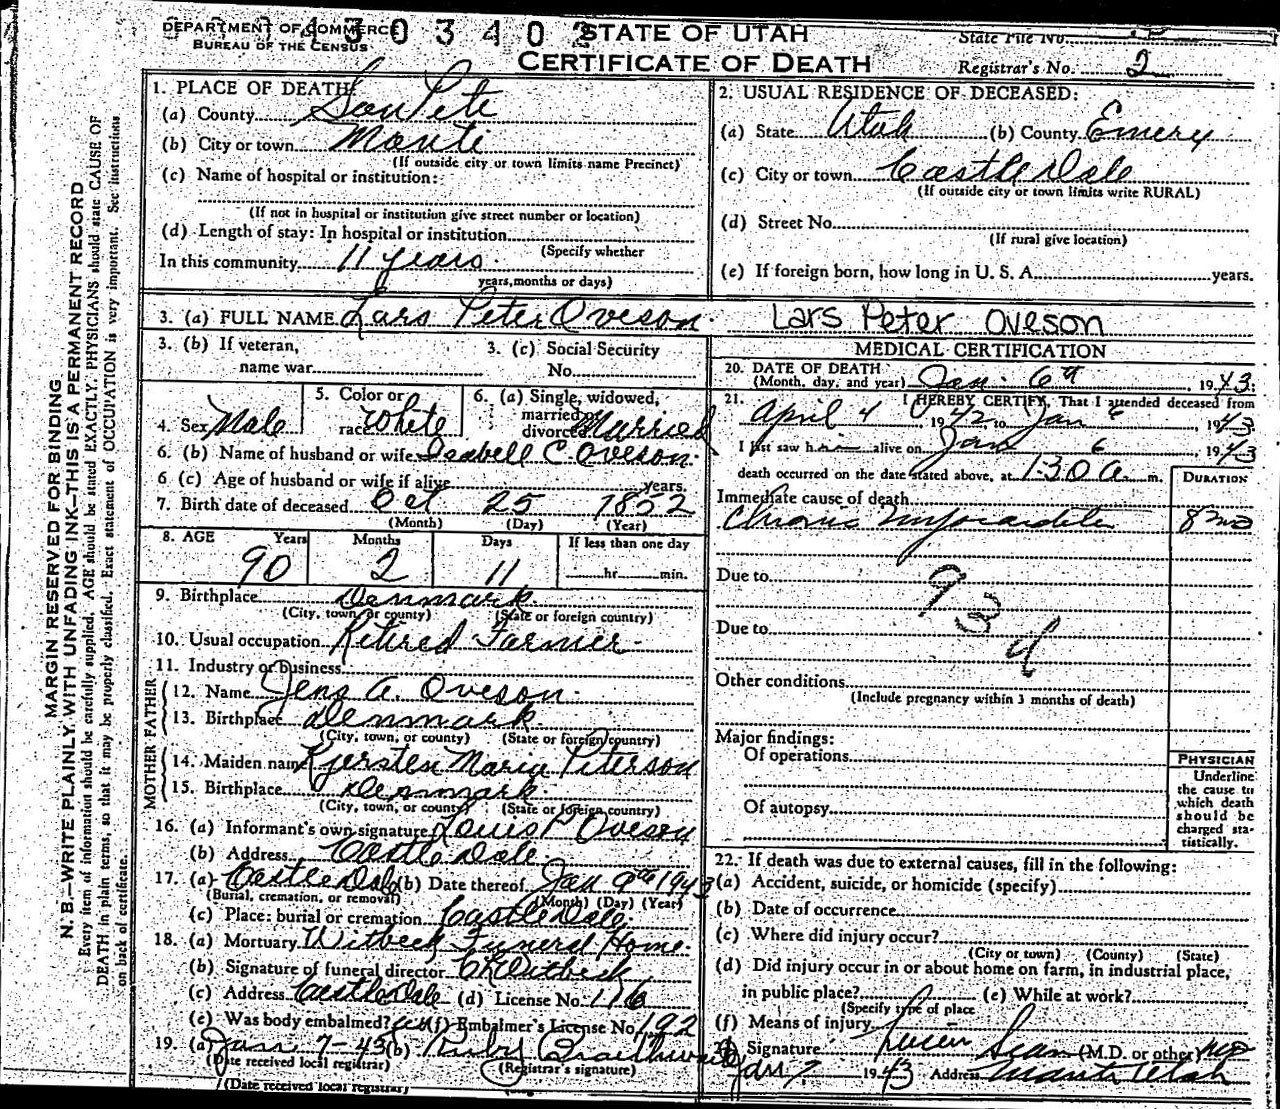 DEPARTMENT OF COMMERCE
BUREAU OF THE CENSUS
4 3 0 3 4 0 2
STATE OF UTAH
CERTIFICATE OF DEATH
State File No.
Registrar's No. 2
MARGIN RESERVED FOR BINDING
N. B.—WRITE PLAINLY, WITH UNFADING INK—THIS IS A PERMANENT RECORD
Every item of information should be carefully supplied. AGE should be stated EXACTLY. PHYSICIANS should state CAUSE OF
DEATH in plain terms, so that it may be properly classified. Exact statement of OCCUPATION is very important. See instructions
on back of certificate.
1. PLACE OF DEATH
(a) County SanPete
(b) City or town Manti
(If outside city or town limits name Precinct)
(c) Name of hospital or institution:
(If not in hospital or institution give street number or location)
(d) Length of stay: In hospital or institution
(Specify whether
In this community 11 years.
years, months or days)
2. USUAL RESIDENCE OF DECEASED:
(a) State Utah (b) County Emery
(c) City or town Castle Dale
(If outside city or town limits write RURAL)
(d) Street No.
(If rural give location)
(e) If foreign born, how long in U. S. A. years.
3. (a) FULL NAME Lars Peter Oveson. Lars Peter Oveson
3. (b) If veteran,
name war
3. (c) Social Security
No.
4. Sex Male
5. Color or
race White
6. (a) Single, widowed,
married or
divorced Married
6. (b) Name of husband or wife Isabell C Oveson.
6 (c) Age of husband or wife if alive years.
7. Birth date of deceased Oct 25 1852
(Month) (Day) (Year)
8. AGE Years Months Days If less than one day
90 2 11 hr. min.
9. Birthplace Denmark
(City, town, or county) (State or foreign country)
10. Usual occupation Retired Farmer
11. Industry or business
FATHER
12. Name Jens A. Oveson.
13. Birthplace Denmark
(City, town, or county) (State or foreign country)
MOTHER
14. Maiden name Kjersten Maria Peterson
15. Birthplace Denmark.
(City, town, or county) (State or foreign country)
16. (a) Informant's own signature Louis P Oveson
(b) Address Castle Dale.
17. (a) Castle Dale (b) Date thereof Jan 9th 1943
(Burial, cremation, or removal) (Month) (Day) (Year)
(c) Place: burial or cremation Castle Dale.
18. (a) Mortuary Witbeck Funeral Home.
(b) Signature of funeral director
(c) Address Castle Dale (d) License No. 176
(e) Was body embalmed? yes (f) Embalmer's License No. 192
19. (a) Jan. 7-43 (b) Ruby Braithwaite
(Date received local registrar) (Registrar's signature)
(Date received local registrar)
MEDICAL CERTIFICATION
20. DATE OF DEATH
(Month, day, and year) Jan. 6th, 1943.
21. I HEREBY CERTIFY, That I attended deceased from
April 4 1942 to Jan 6, 1943
I last saw him alive on Jan 6 1943
death occurred on the date stated above, at 1:30 a. m.
DURATION
Immediate cause of death
Chronic Myocarditis 8 mo
Due to
Due to
93 d
Other conditions
(Include pregnancy within 3 months of death)
Major findings:
Of operations
Of autopsy
PHYSICIAN
Underline
the cause to
which death
should be
charged sta-
tistically.
22. If death was due to external causes, fill in the following:
(a) Accident, suicide, or homicide (specify)
(b) Date of occurrence
(c) Where did injury occur?
(City or town) (County) (State)
(d) Did injury occur in or about home on farm, in industrial place,
in public place? (e) While at work?
(Specify type of place
(f) Means of injury
Signature Lucien Sears (M.D. or other MD
Jan 7 1943 Address Manti Utah